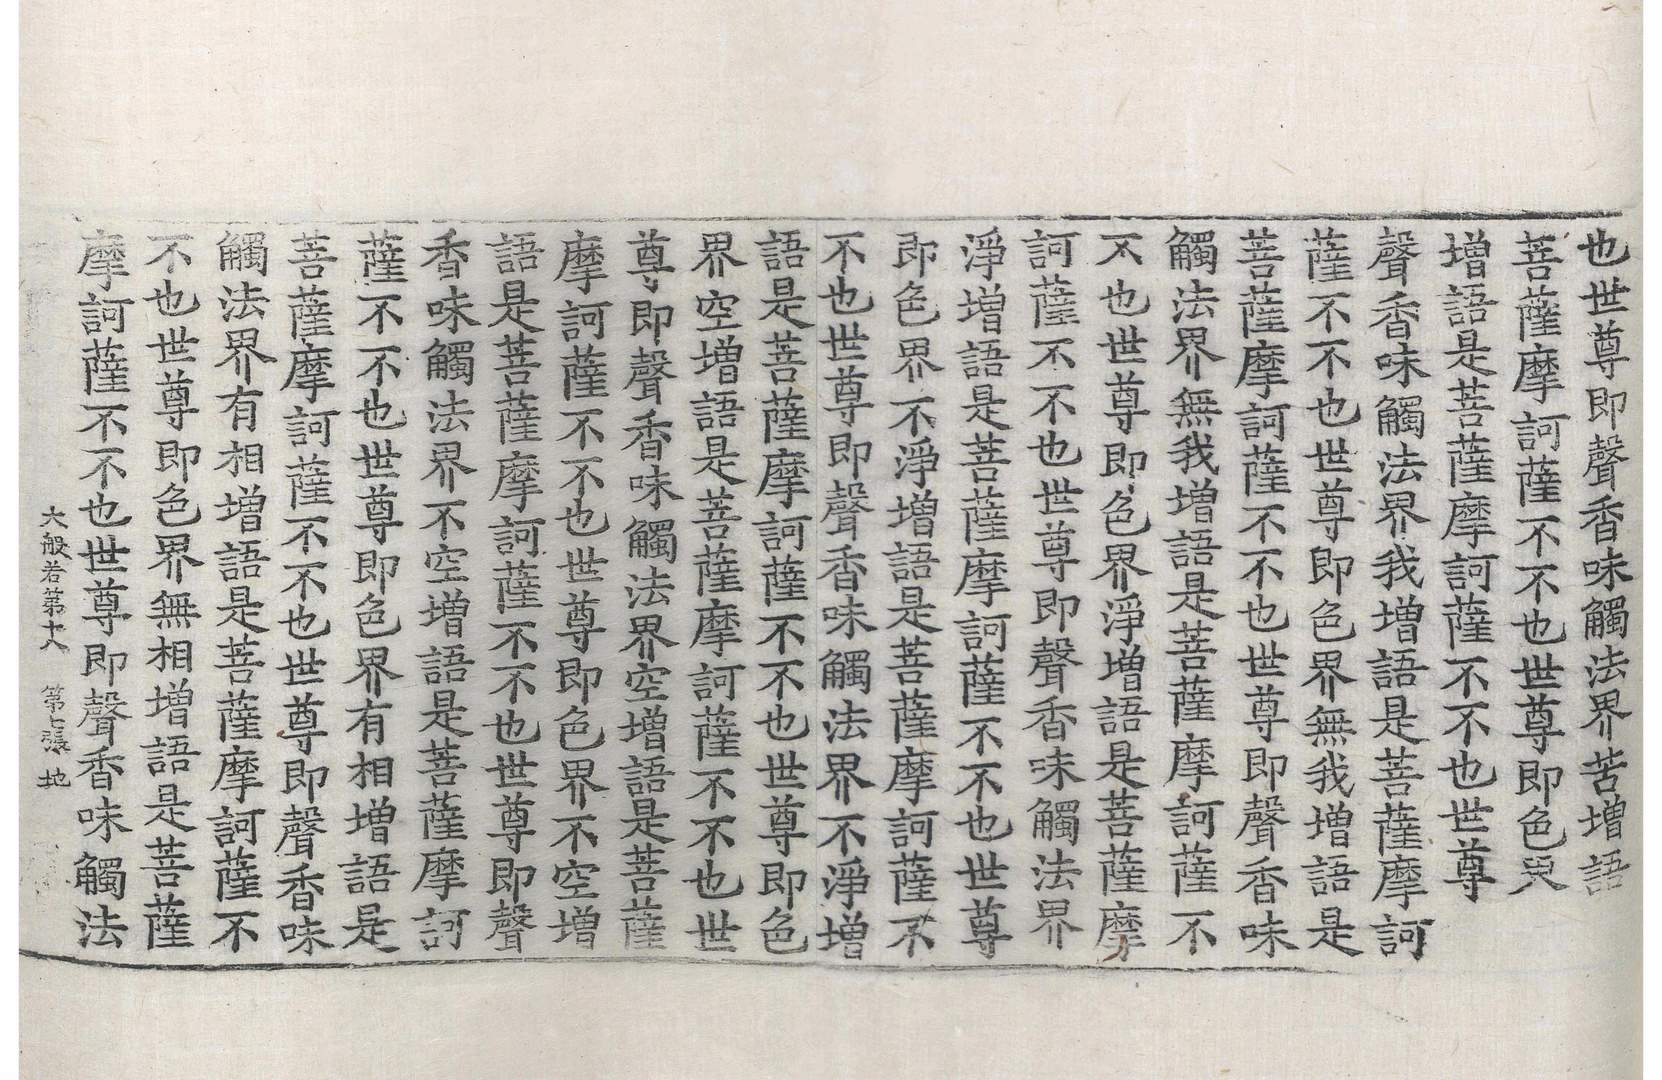 也世尊即聲香味觸法界苦增語
菩薩摩訶薩不不也世尊即色
增語是菩薩摩訶薩不不也世尊
聲香味觸法界我增語是菩薩摩訶
薩不不也世尊即色界無我增語是
菩薩摩訶薩不不也世尊即聲香味
觸法界無我增語是菩薩摩訶薩不
不也世尊即色界淨增語是菩薩摩
訶薩不不也世尊即聲香味觸法界
淨增語是菩薩摩訶薩不不也世尊
即色界不淨增語是菩薩摩訶薩不
不也世尊即聲香味觸法界不淨增
語是菩薩摩訶薩不不也世尊即色
界空增語是菩薩摩訶薩不不也世
尊即聲香味觸法界空增語是菩薩
摩訶薩不不也世尊即色界不空增
語是菩薩摩訶薩不不也世尊即聲
香味觸法界不空增語是菩薩摩訶
薩不不也世尊即色界有相增語是
菩薩摩訶薩不不也世尊即聲香味
觸法界有相增語是菩薩摩訶薩不
不也世尊即色界無相增語是菩薩
摩訶薩不不也世尊即聲香味觸法
大般若第十八 第七張 地